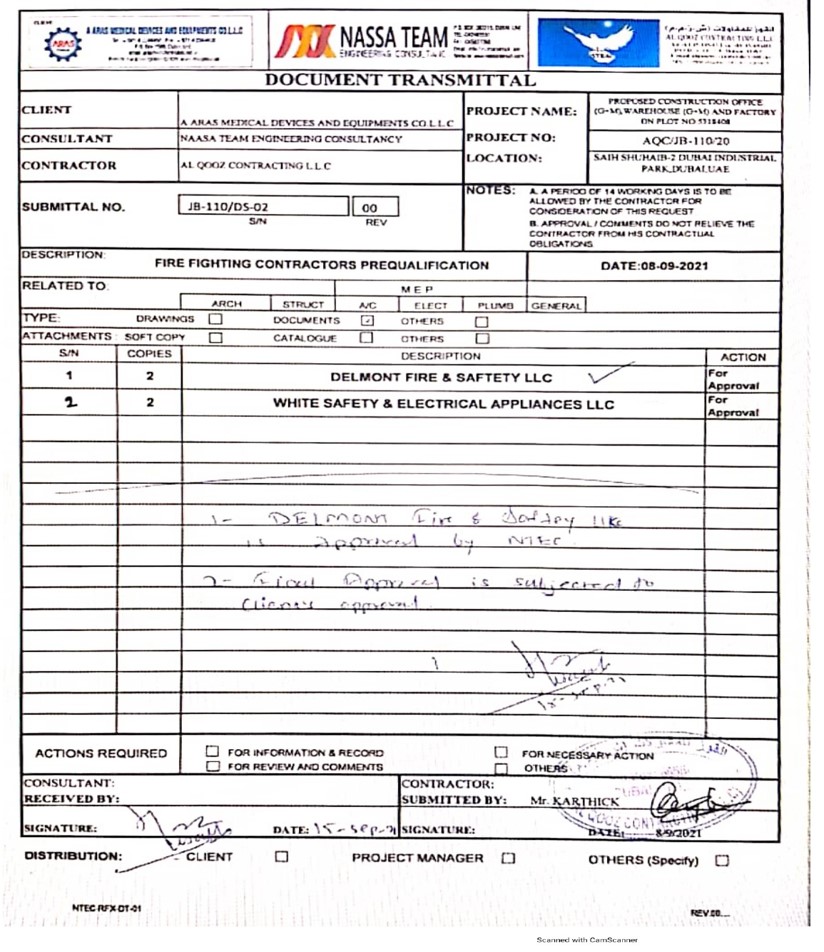 A ARAS MEDICAL DEVICES AND EQUIPMENTS CO L.L.C
ARAS
NASSA TEAM
ENGINEERING CONSULTANC
DOCUMENT TRANSMITTAL
CLIENT
A ARAS MEDICAL DEVICES AND EQUIPMENTS CO L L C
PROJECT NAME:
PROPOSED CONSTRUCTION OFFICE
(G+M), WAREHOUSE (G+M) AND FACTORY
ON PLOT NO 5318408
CONSULTANT
NAASA TEAM ENGINEERING CONSULTANCY
PROJECT NO:
AQC/JB-110/20
CONTRACTOR
AL QOOZ CONTRACTING L L C
LOCATION:
SAIH SHUHAIB-2 DUBAI INDUSTRIAL
PARK,DUBAI,UAE
SUBMITTAL NO.
JB-110/DS-02
00
S/N
REV
NOTES:
A. A PERIOD OF 14 WORKING DAYS IS TO BE
ALLOWED BY THE CONTRACTOR FOR
CONSIDERATION OF THIS REQUEST
B. APPROVAL / COMMENTS DO NOT RELIEVE THE
CONTRACTOR FROM HIS CONTRACTUAL
OBLIGATIONS
DESCRIPTION:
FIRE FIGHTING CONTRACTORS PREQUALIFICATION
DATE:08-09-2021
RELATED TO:
M E P
ARCH STRUCT A/C ELECT PLUMB GENERAL
TYPE: DRAWINGS DOCUMENTS OTHERS
ATTACHMENTS : SOFT COPY CATALOGUE OTHERS
S/N COPIES DESCRIPTION ACTION
1 2 DELMONT FIRE & SAFTETY LLC For
Approval
2 2 WHITE SAFETY & ELECTRICAL APPLIANCES LLC For
Approval
1- DELMONT Fire & Saftey
is approved by NTEC
2- Final Approval is subjected to
Client's approval.
15-Sep-21
ACTIONS REQUIRED
FOR INFORMATION & RECORD
FOR NECESSARY ACTION
FOR REVIEW AND COMMENTS
OTHERS
CONSULTANT:
RECEIVED BY:
CONTRACTOR:
SUBMITTED BY: Mr. KARTHICK
SIGNATURE: DATE: 15-Sep-21
SIGNATURE: DATE: 8/9/2021
DISTRIBUTION: CLIENT PROJECT MANAGER OTHERS (Specify)
NTEC-RFX-DT-01
REV.00....
Scanned with CamScanner